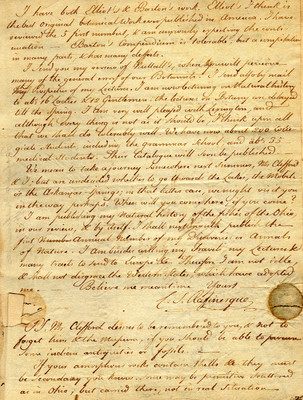 I have both Elliot's & Barton's work. Elliot's I think is
the best original botanical Work ever published in America. I have
received the 5 first numbers, & am anxiously expecting the conti-
nuation — Barton's Compendium is tolerable, but a compilation
in many parts & has many defects.
I send you a review of Nuttall's, where you will perceive
the general error of our Botanists. I send also by mail
the Prospectus of my Lectures. I am now lecturing on Natural history
to ab. 16 Ladies & 10 Gentlemen; the lectures in Botany are delayed
till the Spring. I am very well pleased with Lexington, and
although every thing is not as it should be, I think upon all
that we shall do tolerably well. We have now about 200 Colle-
giate Students, including the grammar school, and ab. 35
medical Students. Their Catalogue will soon be published.
We mean to take a journey somewhere next Summer, Mr Clifford
& I; but are undecided whether to go towards the Lakes, the Mobile
or the Arkansas Springs; in that latter case, we might visit you
in the way perhaps. When will you come here, if you come?
I am publishing my Natural history of the fishes of the Ohio
in our review, & by itself. I shall
first Number Annual Number of my Discoveries or Annals
of Nature. I am besides writing my Travels, my Lectures &
many tracts to send to Europe &c. Therefore I am not idle
& shall not disgrace the Western States, which have adopted
me. Believe me meantime Yours
C. S. Rafinesque
P.S. Mr Clifford desires to be remembered to you, & not to
forget him & the Museum, if you should be able to procure
some indian antiquities or fossils.
If your amorphous rocks contain shells &c they must
be secondary you know,
as in Ohio; but carried there, not in real Situation